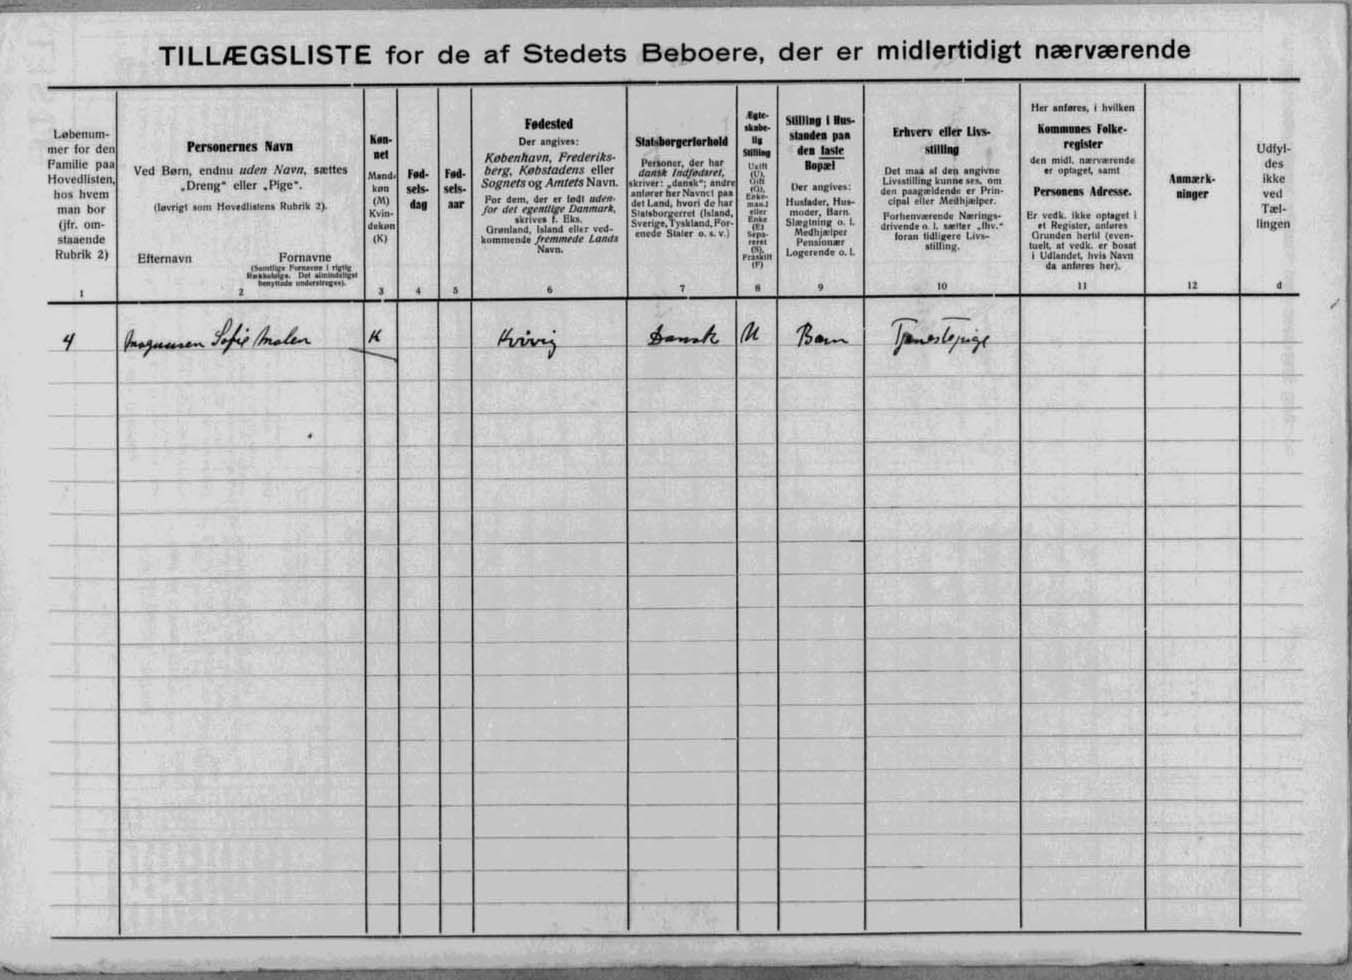 TILLÆGSLISTE for de af Stedets Beboere, der er midlertidigt nærværende
Løbenum-
mer for den
Familie paa
Hovedlisten,
hos hvem
man bor
(jfr. om-
staaende
Rubrik 2)
1
Personernes Navn
Ved Børn, endnu uden Navn, sættes
„Dreng“ eller „Pige“.
(Iøvrigt som Hovedlistens Rubrik 2).
Efternavn Fornavne
(Samtlige Fornavne i rigtig
Rækkefølge. Det almindeligst
benyttede understreges).
2
Køn-
net
Mand-
køn
(M)
Kvin-
dekøn
(K)
3
Fød-
sels-
dag
4
Fød-
sels-
aar
5
Fødested
Der angives:
København, Frederiks-
berg, Købstadens eller
Sognets og Amtets Navn.
For dem, der er født uden-
for det egentlige Danmark,
skrives f. Eks.
Grønland, Island eller ved-
kommende fremmede Lands
Navn.
6
Statsborgerforhold
Personer, der har
dansk Indfødsret,
skriver: „dansk“; andre
anfører her Navnet paa
det Land, hvori de har
Statsborgerret (Island,
Sverige, Tyskland, For-
enede Stater o. s. v.)
7
Ægte-
skabe-
lig
Stilling
Ugift
(U),
Gift
(G),
Enke-
mand
eller
Enke
(E)
Sepa-
reret
(S),
Fraskilt
(F)
8
Stilling i Hus-
standen paa
den faste
Bopæl
Der angives:
Husfader, Hus-
moder, Barn.
Slægtning o. l.
Medhjælper
Pensionær
Logerende o. l.
9
Erhverv eller Livs-
stilling
Det maa af den angivne
Livsstilling kunne ses, om
den paagældende er Prin-
cipal eller Medhjælper.
Forhenværende Nærings-
drivende o. l. sætter „fhv.“
foran tidligere Livs-
stilling.
10
Her anføres, i hvilken
Kommunes Folke-
register
den midl. nærværende
er optaget, samt
Personens Adresse.
Er vedk. ikke optaget i
et Register, anføres
Grunden hertil (even-
tuelt, at vedk. er bosat
i Udlandet, hvis Navn
da anføres her).
11
Anmærk-
ninger
12
Udfyl-
des
ikke
ved
Tæl-
lingen
d
4 Magnusen Sofie Malen K Kvivig Dansk U Barn Tjenestepige